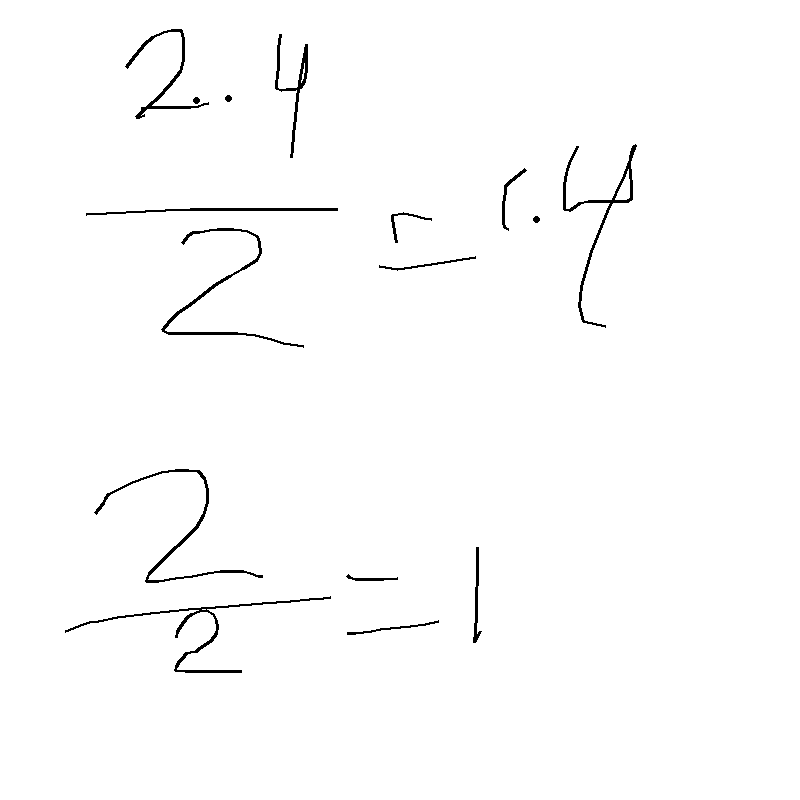 2..4
2 = 1.4
2
2 = 1